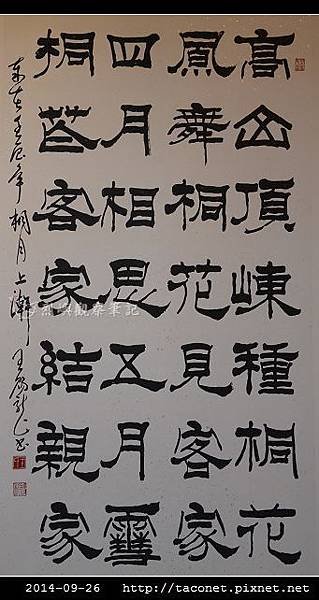 高山頂崠種桐花
鳳舞桐花見客家
四月相思五月雪
桐花客家結親家
觀察筆記
2014-09-26 http://taconet.pixnet.net